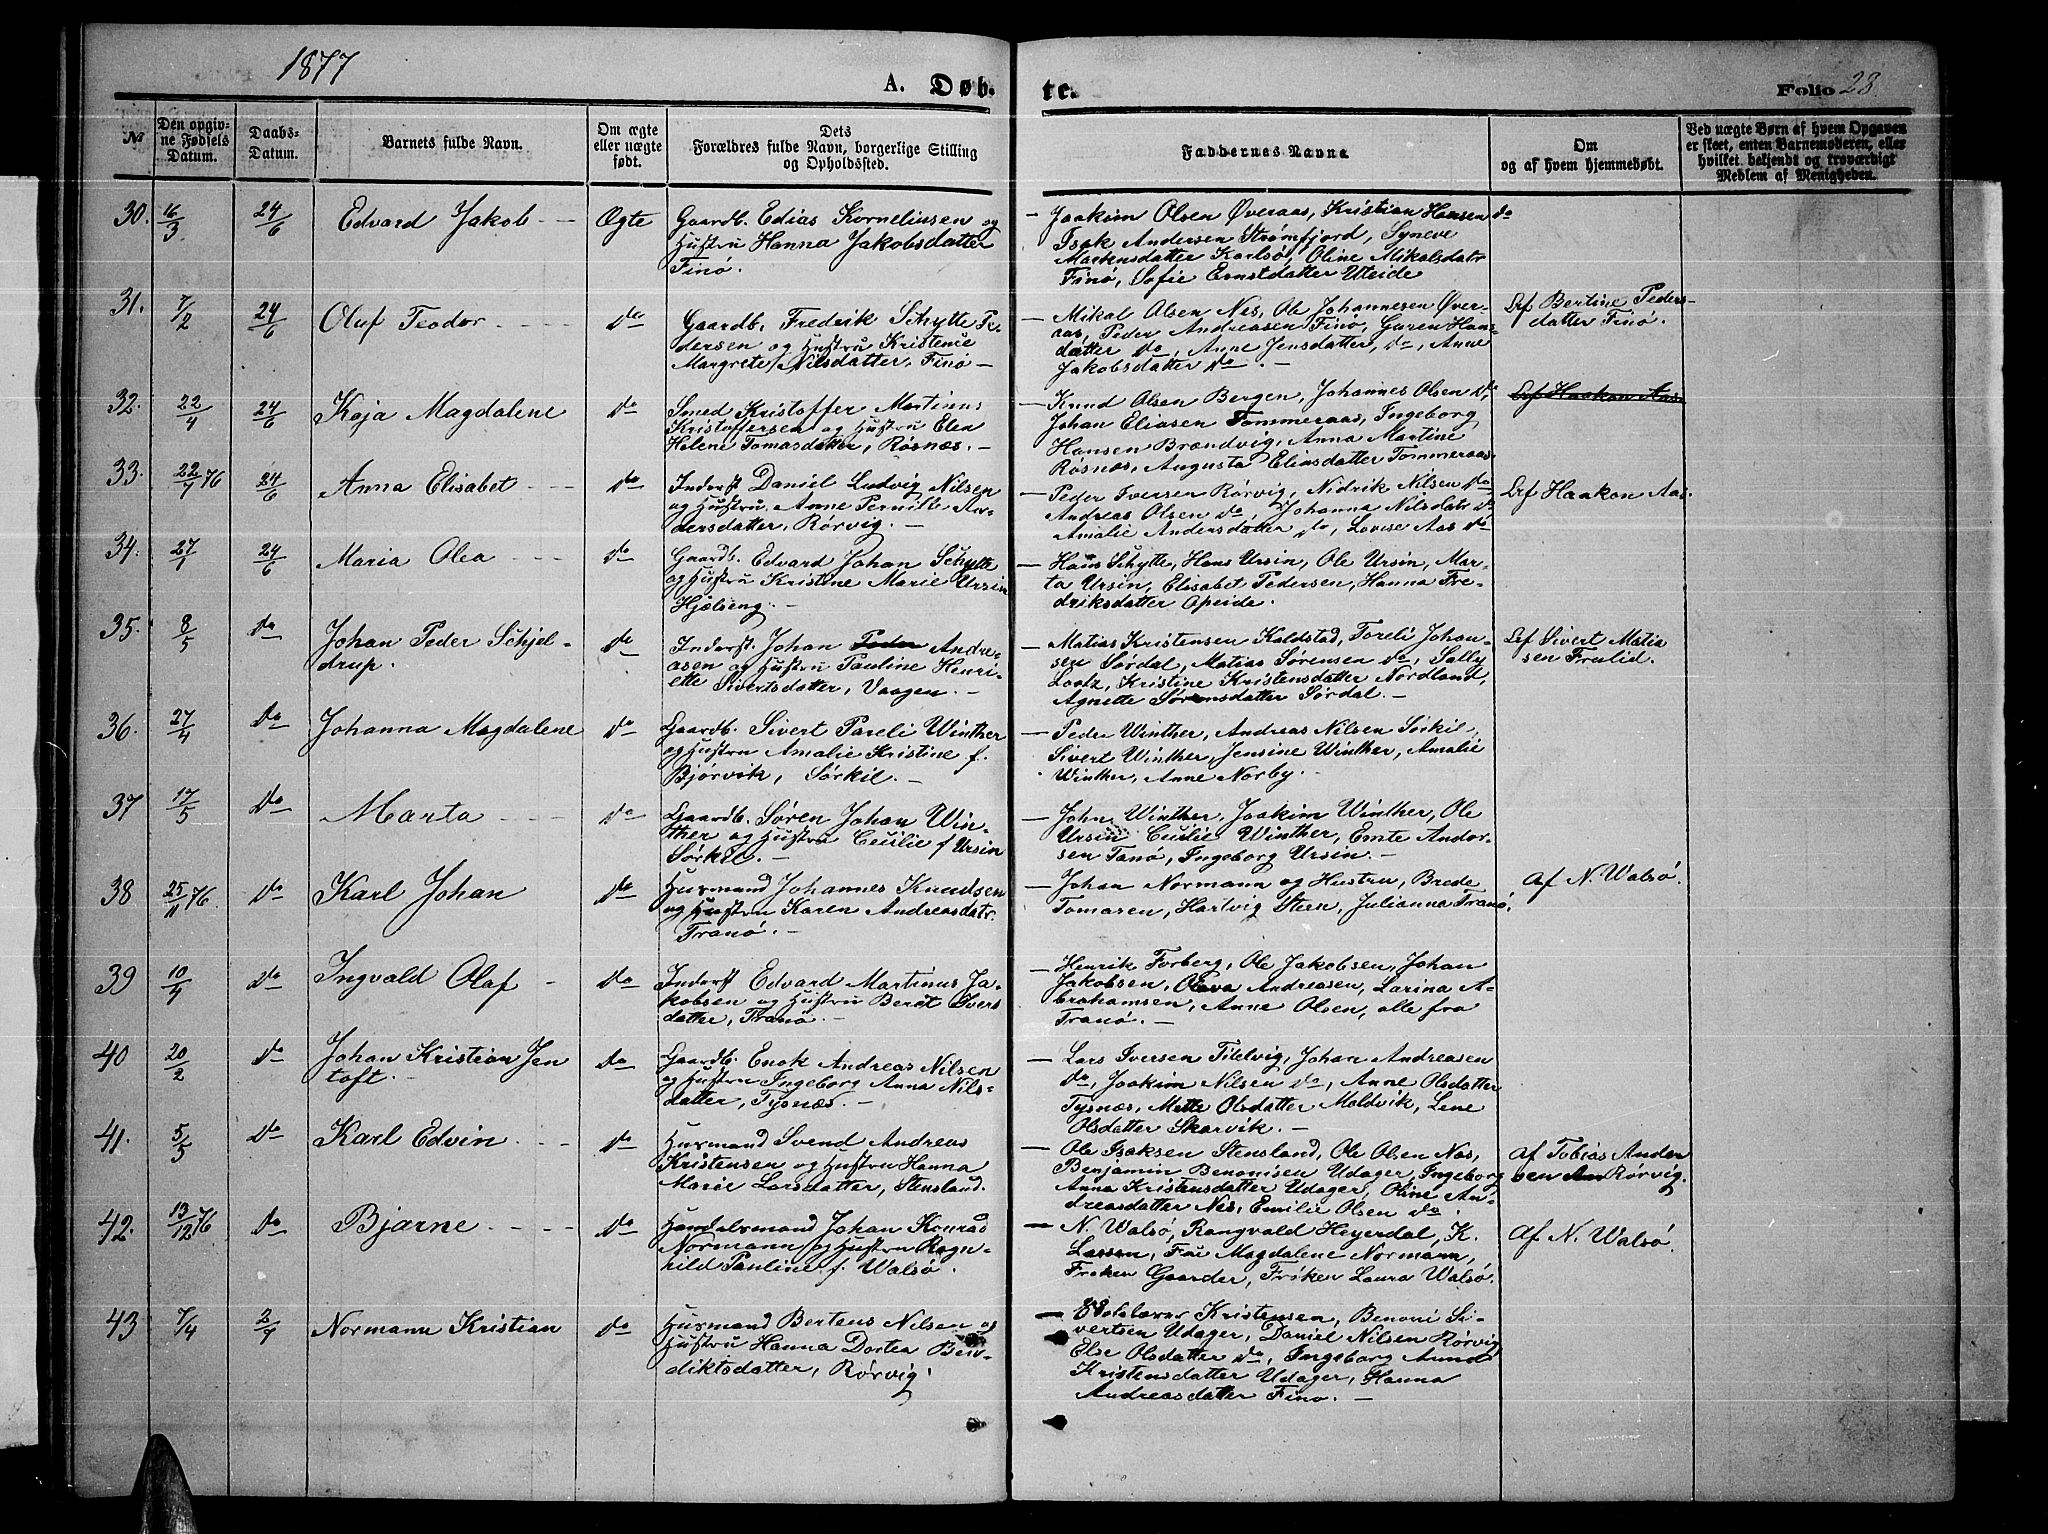 1877
A. Døb-
te.
Folio 28.
№
Den opgiv-
ne Fødsels
Datum.
Daabs-
Datum.
Barnets fulde Navn.
Om ægte
eller uægte
født.
Dets
Forældres fulde Navn, borgerlige Stilling
og Opholdssted.
Faddernes Navne
Om
og af hvem hjemmedøbt.
Ved uægte Børn af hvem Opgaven
er skeet, enten Barnemoderen, eller
hvilket bekjendt og troværdigt
Medlem af Menigheden.
30. 16/3 24/6 Edvard Jakob Ægte
Gaardb. Edias Korneliusen og
Hustru Hanna Jakobsdatter
Finø.
Joakim Olsen Øveraas, Kristian Hansen do
Isak Andersen Strømfjord, Syneve
Martensdatter Karlsø, Oline Mikalsdatr
Finø, Sofie Ernstdatter Uteide
31. 7/2 24/6 Oluf Teodor do
Gaardb. Fredrik Schytte Pe-
dersen og Hustru Kristence
Margrete Nilsdatter, Finø
Mikal Olsen Nes, Ole Johannesen Øver-
aas, Peder Andreasen Finø, Guren Hans-
datter do, Anne Jensdatter, do, Anne
Jakobsdatter do.
Lrf Bertine Peders-
datter Finø.
32. 22/4 24/6 Kaja Magdalene do
Smed Kristoffer Martinus
Kristoffersen og Hustru Elen
Helene Tomasdatter, Røsnæs.
Knud Olsen Bergen, Johannes Olsen do,
Johan Eliasen Tommeraas, Ingeborg
Hansen Brandvig, Anna Martine
Røsnæs, Augusta Eliasdatter Tommeraas
Lrf Haakon Aas
33. 22/7 76 24/6 Anna Elisabet do
Inderst Daniel Ludvig Nilsen
og Hustru Anne Pernille An-
dersdatter, Rørvig.
Peder Iversen Rørvig, Nidrik Nilsen do
Andreas Olsen do, Johanna Nilsdatr do
Amalie Andersdatter do, Lovise Aas do
Lrf Haakon Aas
34. 27/7 24/6 Maria Olea do
Gaardb. Edvard Johan Schytte
og Hustru Kristine Marie Ursin
Hjelseng.
Hans Schytte, Hans Ursin, Ole Ursin, Mar-
ta Ursin, Elisabet Pedersen, Hanna Fre-
driksdatter Opeide.
35. 8/5 do Johan Peder Schjel-
drup. do
Inderst. Johan Peder Andre-
asen og Hustru Pauline Henri-
ette Sivertsdatter, Vaagen.
Matias Kristensen Kaldstad, Toreli Johan-
sen Sørdal, Matias Sørensen do, Sally
Lootz, Kristine Kristensdatter Nordland,
Agnette Sørensdatter Sørdal.
Lrf Sivert Matia
sen Frulid.
36. 27/4 do Johanna Magdalene do
Gaardb. Sivert Pareli Winther
og Hustru Amalie Kristine f.
Bjørvik, Sørkil.
Peder Winther, Andreas Nilsen Sørkil,
Sivert Winther, Jensine Winther, Amalie
Winther, Anne Norby.
37 17/5 do Marta do
Gaardb. Søren Johan Win-
ther og Hustru Cecilie f Ursin
Sørkil.
John Winther, Joakim Winther, Ole
Ursin Cecilie Winther, Emte Ander-
sen Tanø, Ingeborg Ursin.
38 25/11 76. do Karl Johan do
Husmand Johannes Knudsen
og Hustru Karen Andreasdatr.
Tranø.
Johan Normann og Hustru, Brede
Tomasen, Hartvig Steen, Julianna Tranø.
Af N. Walsø.
39 10/4 do Ingvald Olaf do
Inderst Edvard Martinus Ja-
kobsen og Hustru Berdt Ivers
datter, Tranø.
Henrik Forberg, Ole Jakobsen, Johan
Jakobsen, Olava Andreasen, Larina A-
brahamsen, Anne Olsen, alle fra
Tranø.
40 20/2 do Johan Kristian Jen
toft. do
Gaardb. Enok Andreas Nilsen
og Hustru Ingeborg Anna Nils-
datter, Tysnæs.
Lars Iversen Tilelvig, Johan Andreasen
do, Joakim Nilsen do, Anne Olsdatter
Tysnæs, Mette Olsdatter Moldvik, Lene
Olsdatter Skarvik.
41. 5/5 do Karl Edvin do
Husmand Svend Andreas
Kristensen og Hustru Hanna
Marie Larsdatter, Stensland.
Ole Isaksen Stensland, Ole Olsen Nes,
Benjamin Benonisen Udager, Ingeborg
Anna Kristensdatter Udager, Oline An-
dreasdatter Nes, Emilie Olsen do.
Af Tobias Ander
sen Rørvig.
42. 13/12 76 do Bjarne do
Handelsmand Johan Konrad
Normann og Hustru Ragn-
hild Pauline f. Walsø.
N. Walsø, Rangvald Heyerdal, K.
Lassen, Fru Magdalene Normann,
Frøken Gaarder, Frøken Laura Walsø.
Af N. Walsø.
43 7/4 2/7 Normann Kristian do
Husmand Bertens Nilsen og
Hustru Hanna Dortea Ben-
diktsdatter, Rørvig.
Kristensen, Benoni Si-
vertsen Udager, Daniel Nilsen Rørvig
Else Olsdatter do, Ingeborg Anna
Kristensdatter Udager, Hanna
Andreasdatter Finø.